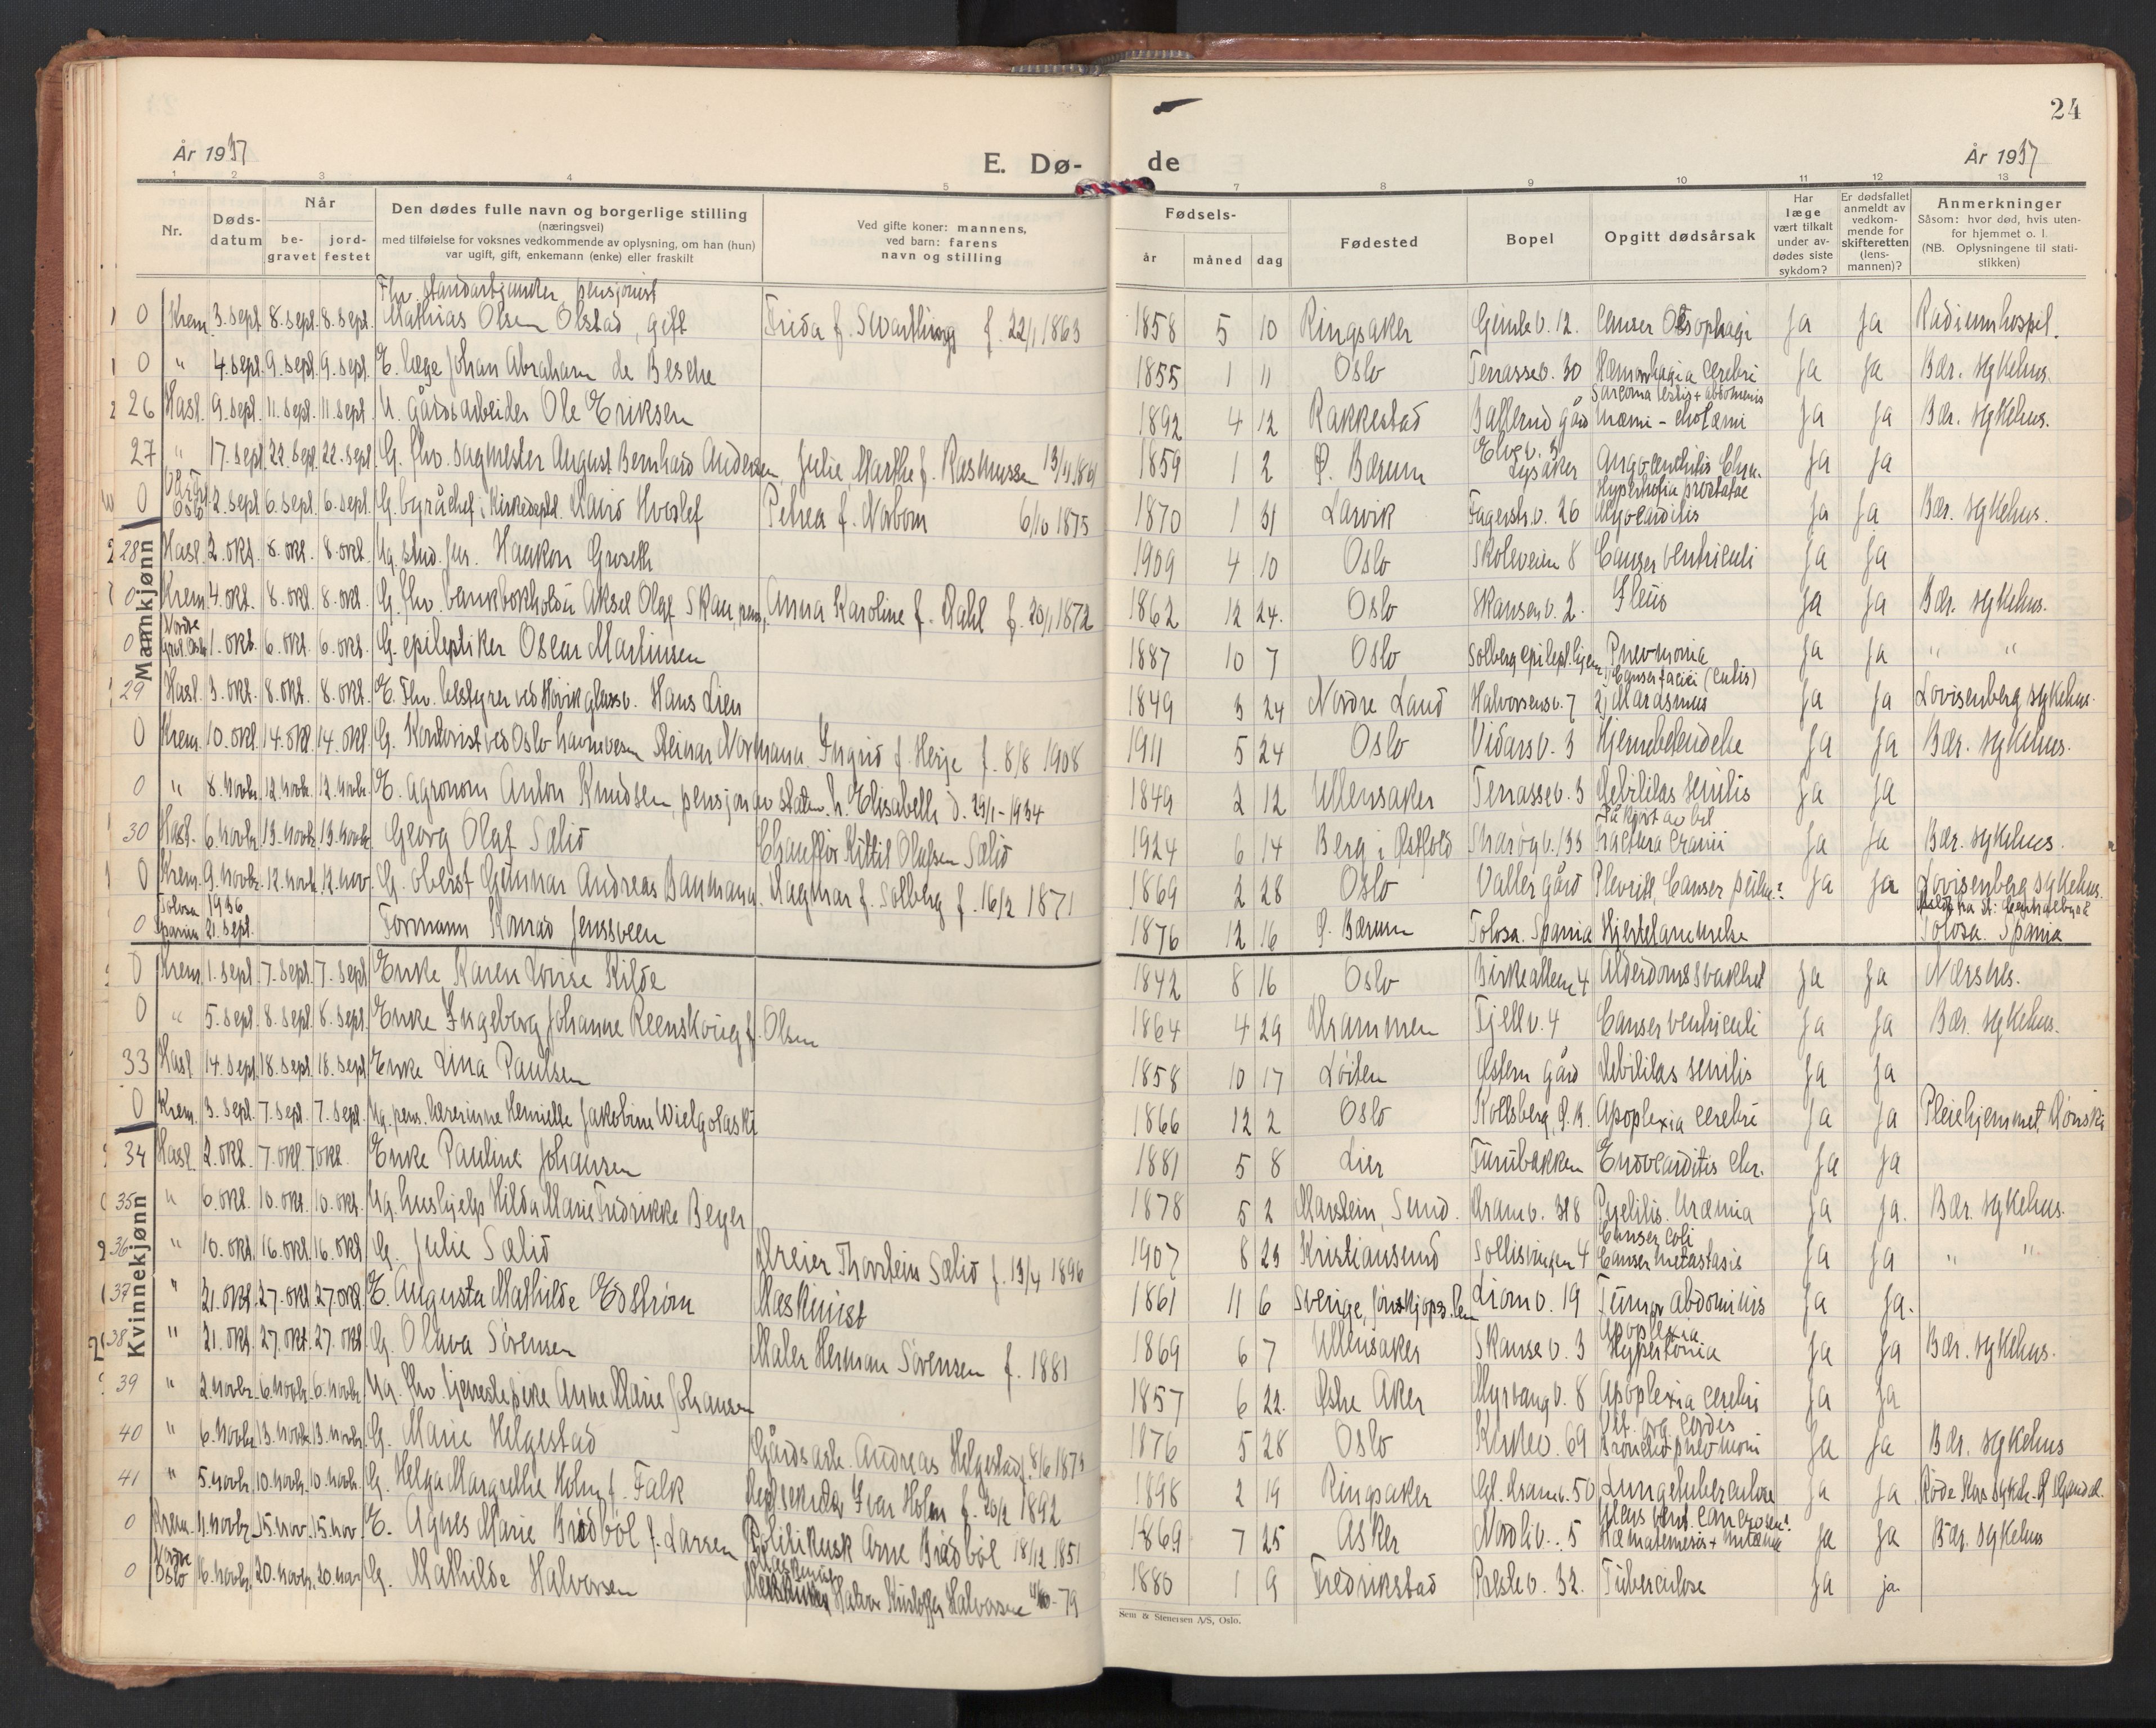 24
År 1937
E. Dø- de
År 1937
1 2 3 4 5 7 8 9 10 11 12 13
Nr.
Døds-
datum
Når
be-
gravet
jord-
festet
Den dødes fulle navn og borgerlige stilling
(næringsvei)
med tilføielse for voksnes vedkommende av oplysning, om han (hun)
var ugift, gift, enkemann (enke) eller fraskilt
Ved gifte koner: mannens,
ved barn: farens
navn og stilling
Fødsels-
år måned dag
Fødested
Bopel
Opgitt dødsårsak
Har
læge
vært tilkalt
under av-
dødes siste
sykdom?
Er dødsfallet
anmeldt av
vedkom-
mende for
skifteretten
(lens-
mannen)?
Anmerkninger
Såsom: hvor død, hvis uten-
for hjemmet o. l.
(NB. Oplysningene til stati-
stikken)
Mannkjønn
Fhv. standartjunker, pensjonist
0 Krem. 3. sept. 8. sept. 8. sept. Mathias Olsen Olstad, gift Frida f. Swartling f. 22/1 1863 1858 5 10 Ringsaker Gimlev. 12. Canser Oesophagi ja ja Radiumhospit.
0 " 4. sept. 9. sept. 9. sept. E. læge Johan Abraham de Besche 1855 1 11 Oslo Terrassev. 30 Hæmorrhagia cerebri ja ja Bær. sykehus.
Sarcoma testis + abdominis
26 Hasl. 9. sept. 11. sept. 11. sept. U. gårdsarbeider Ole Eriksen 1892 4 12 Rakkestad Ballerud gård Uræmi - cholæmi ja ja Bær. sykehus.
27 " 17. sept. 22. sept. 22. sept. G. fhv. sagmester August Bernhard Andersen, Julie Marthe f. Rasmussen 1859 1 2 Ø. Bærum Elvev. 3 Lysaker ja ja
Hypertrofia prostatae
0 Oslo 2. sept. 6. sept. 6. sept. G. byråchef i Kirkedeptet. David Hvoslef Petrea f. Norbom 6/10 1875 1870 1 31 Larvik Fagerstr.v. 26 Myocarditis ja ja Bær. sykehus.
28 Hasl. 2. okt. 8. okt. 8. okt. Ug. stud. jur. Haakon Groseth 1909 4 10 Oslo Skoleveien 8 Canser ventriculi ja ja
0 Krem. 4. okt. 8. okt. 8. okt. G. fhv. bankbokholder Aksel Olaf Skau, pens., Anna Karoline f. Dahl f. 20/1 1872 1862 12 24. Oslo Skansenv. 2. Ileus ja ja Bær. sykehus.
0 Nordre Grav. Oslo 1. okt. 6. okt. 6. okt. G. epileptiker Oscar Martinsen 1887 10 7 Oslo Solberg epilept.hjem Pnevmonia ja ja " "
1) Canser faciei (cutis)
29 Hasl. 3. okt. 8. okt. 8. okt. E. Fhv. bestyrer ved Høvik glassv. Hans Lien 1849 3 24 Nordre Land Halvorsensv. 7 2) Marasmus ja ja Lovisenberg sykehus.
0 Krem. 10. okt. 14. okt. 14. okt. G. Kontorist ved Oslo havnevesen Steinar Normann. Ingrid f. Herje f. 8/8 1908 1911 5 24 Oslo Vidarsv. 3 Hjernebetendelse ja ja Bær. sykehus.
0 " 8. novbr. 12. novbr. 12. novbr. E. agronom Anton Knudsen, pensjon av staten. h. Elisabeth d. 29/1-1934 1849 2 12 Ullensaker Terrassev. 3 Debilitas senilis ja ja
Påkjørt av bil
30 Hasl. 6. novbr. 13. novbr. 13. novbr. Georg Olaf Sælid Chauffør Kittil Olafsen Sælid 1924 6 14 Berg i Østfold Skarøyv. 133 Fractura cranii ja ja Bær. sykehus.
0 Krem. 9. novbr. 12. novbr. 12. nov. G. oberst Gunnar Andreas Baumann. Dagmar f. Solberg f. 16/2 1871 1869 2 28 Oslo Valler gård Plevritt, Canser pulm.? ja ja Lovisenberg sykehus.
0 Tolosa Spania 1936 21. sept. Formann Konrad Jenssveen 1876 12 16 Ø. Bærum Tolosa. Spania Hjertelammelse Tolosa. Spania
Kvinnekjønn
0 Krem. 1. sept. 7. sept. 7. sept. Enke Karen Lovise Kilde 1842 8 16 Oslo Birkealleen 4 Alderdomssvakhet ja ja Næsnes.
0 " 5. sept. 8. sept. 8. sept. Enke Ingeborg Johanne Reenskoug f. Olsen 1864 4 29 Drammen Fjellv. 4 Canser ventriculi ja ja Bær. sykehus.
33 Hasl 14. sept. 18. sept. 18. sept. Enke Lina Paulsen 1858 10 17 Løiten Østern gård Debilitas senilis ja ja
0 Krem. 3. sept. 7. sept. 7. sept. Ug. pens. lærerinne Henriette Jakobine Wielgolaski 1866 12 2 Oslo Kolsberg, Ø.B. Apoplexia cerebri ja ja Pleiehjemmet, Dønski
34 Hasl 2. okt. 7. okt. 7 okt. Enke Pauline Johansen 1881 5 8 Lier Furubakken Endocarditis chr. ja ja
35 " 6. okt. 10. okt. 10. okt. Ug. hushjelp Hilda Marie Fredrikke Beyer 1878 5 2 Marstein, Sund. Dramv. 318 Pyelitis. Uræmia ja ja. Bær. sykehus.
Canser coli
36 " 10. okt. 16. okt. 16. okt. G. Julie Sælid Dreier Thorstein Sælid f. 13/4 1896 1907 8 23 Kristiansund Sollisvingen 4 Canser metastasis ja ja " "
37 " 21. okt. 27. okt. 27. okt. E. Augusta Mathilde Edstrøm Maskinist 1861 11 6 Sverige, Jønskjøps.len Lionv. 19 Tumor abdominis ja ja.
Apoplexia
38 " 21. okt. 27. okt. 27. okt. G. Olava Sørensen Maler Herman Sørensen f. 1881 1869 6 7 Ullensaker Skansev. 3 Hypertonia ja ja Bær. sykehus.
39 " 2. novbr. 6. novbr. 6. novbr. Ug. fhv. tjenestepike Anne Marie Johansen 1857 6 22. Østre Aker Myrvangv. 8 Apoplexia cerebri ja ja
Vit. org. cordis
40 " 6. novbr. 13. novbr. 13. novbr. G. Marie Helgestad Gårdsarb. Andreas Helgestad f. 8/6 1873 1876 5 28 Oslo Kirkev. 69 Bronchopnevmoni ja ja Bær. sykehus
41 " 5. novbr. 10. novbr. 10. novbr. G. Helga Margrethe Holm f. Falk Ivar Holm f. 20/2 1892 1898 2 19 Ringsaker Gl. Dramv. 50 Lungetuberculose ja ja Røde Kors sykeh.
Ulcus vent. cancrosum?
0 Krem. 11. novbr. 15. nov. 15. nov. E. Agnes Marie Brødbøl f. Larsen Politikusk Arne Brødbøl 18/12 1851 1869 7 25 Asker Nordliv. 5 Hæmatemesis + melæna ja ja Bær. sykehus
0 Nordre Oslo 16. novbr. 20. novbr. 20. nov. G. Mathilde Halvorsen Maskinist Halvor Kristoffer Halvorsen -79 1880 1 9 Fredrikstad Præstev. 32. Tuberculose ja ja
Sem & Stenersen A/S, Oslo.